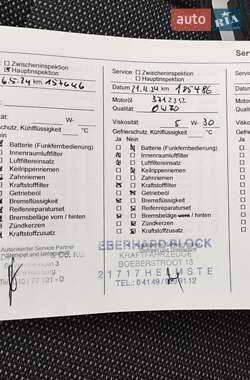 auto RIA
Ser
Zwischeninspektion
Hauptinspektion
6.5.24 km 157646
W-
schutz, Kühlflüssigkeit °C
Ja Nein
Batterie (Funkfernbedienung)
Innenraumluftfilter
Luftfiltereinsatz
Keilrippenriemen
Zahnriemen
Kraftstofffilter
Getriebeöl
Bremsflüssigkeit
Reifenreparaturset
Bremsbeläge vorn / hinten
Zündkerzen
Kraftstoffzusatz
Autorisierter Service Partner
Stempel und Unterschrift
Service: Zwischeninspektion
Hauptinspektion
Datum 21.4.24 km 185486
Motoröl
Qualität 0W30
Viskosität 5 W- 30
Gefrierschutz, Kühlflüssigkeit °C
Ja Nein
Batterie (Funkfernbedienung)
Innenraumluftfilter
Luftfiltereinsatz
Keilrippenriemen
Zahnriemen
Kraftstofffilter
Getriebeöl
Bremsflüssigkeit
Reifenreparaturset
Bremsbeläge vorn / hinten
Zündkerzen
Kraftstoffzusatz
EBERHARD BLOCK
KRAFTFAHRZEUGE
21717 HELMSTE
Service:
Datum
Motoröl
Qualität
Viskosität
Gefriersch
Ja Nein